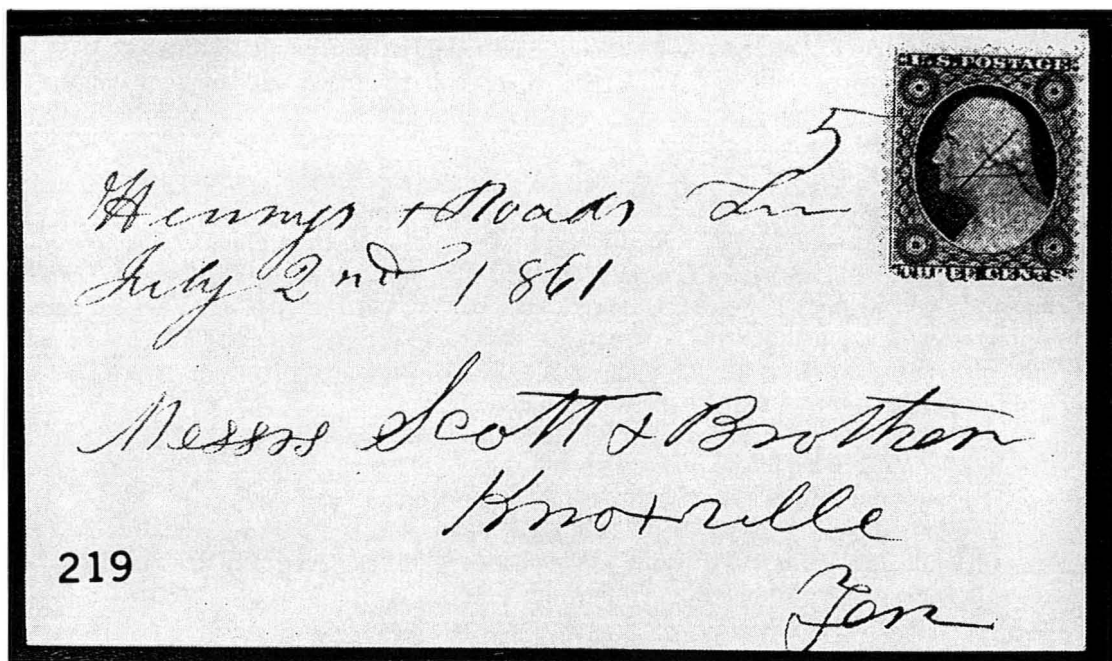 U.S.POSTAGE
THREE CENTS
5
X Roads
July 2nd 1861
Messrs Scott & Brother
Knoxville
Ten
219